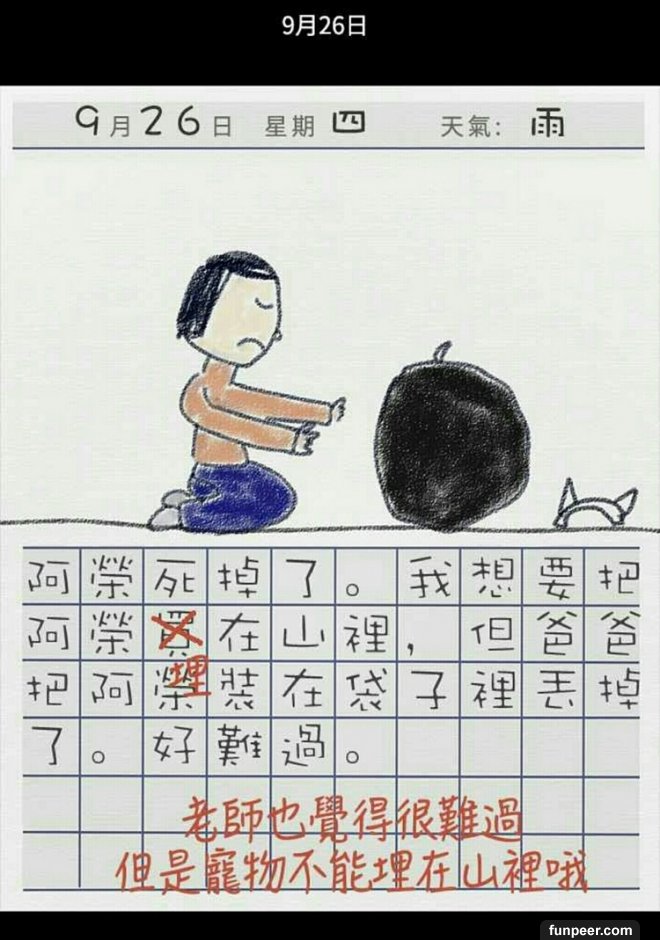 9月26日
9月26日 星期四 天氣：雨
阿榮死掉了。我想要把
阿榮買在山裡，但爸爸
埋
把阿榮裝在袋子裡丟掉
了。好難過。
老師也覺得很難過
但是寵物不能埋在山裡哦
funpeer.com